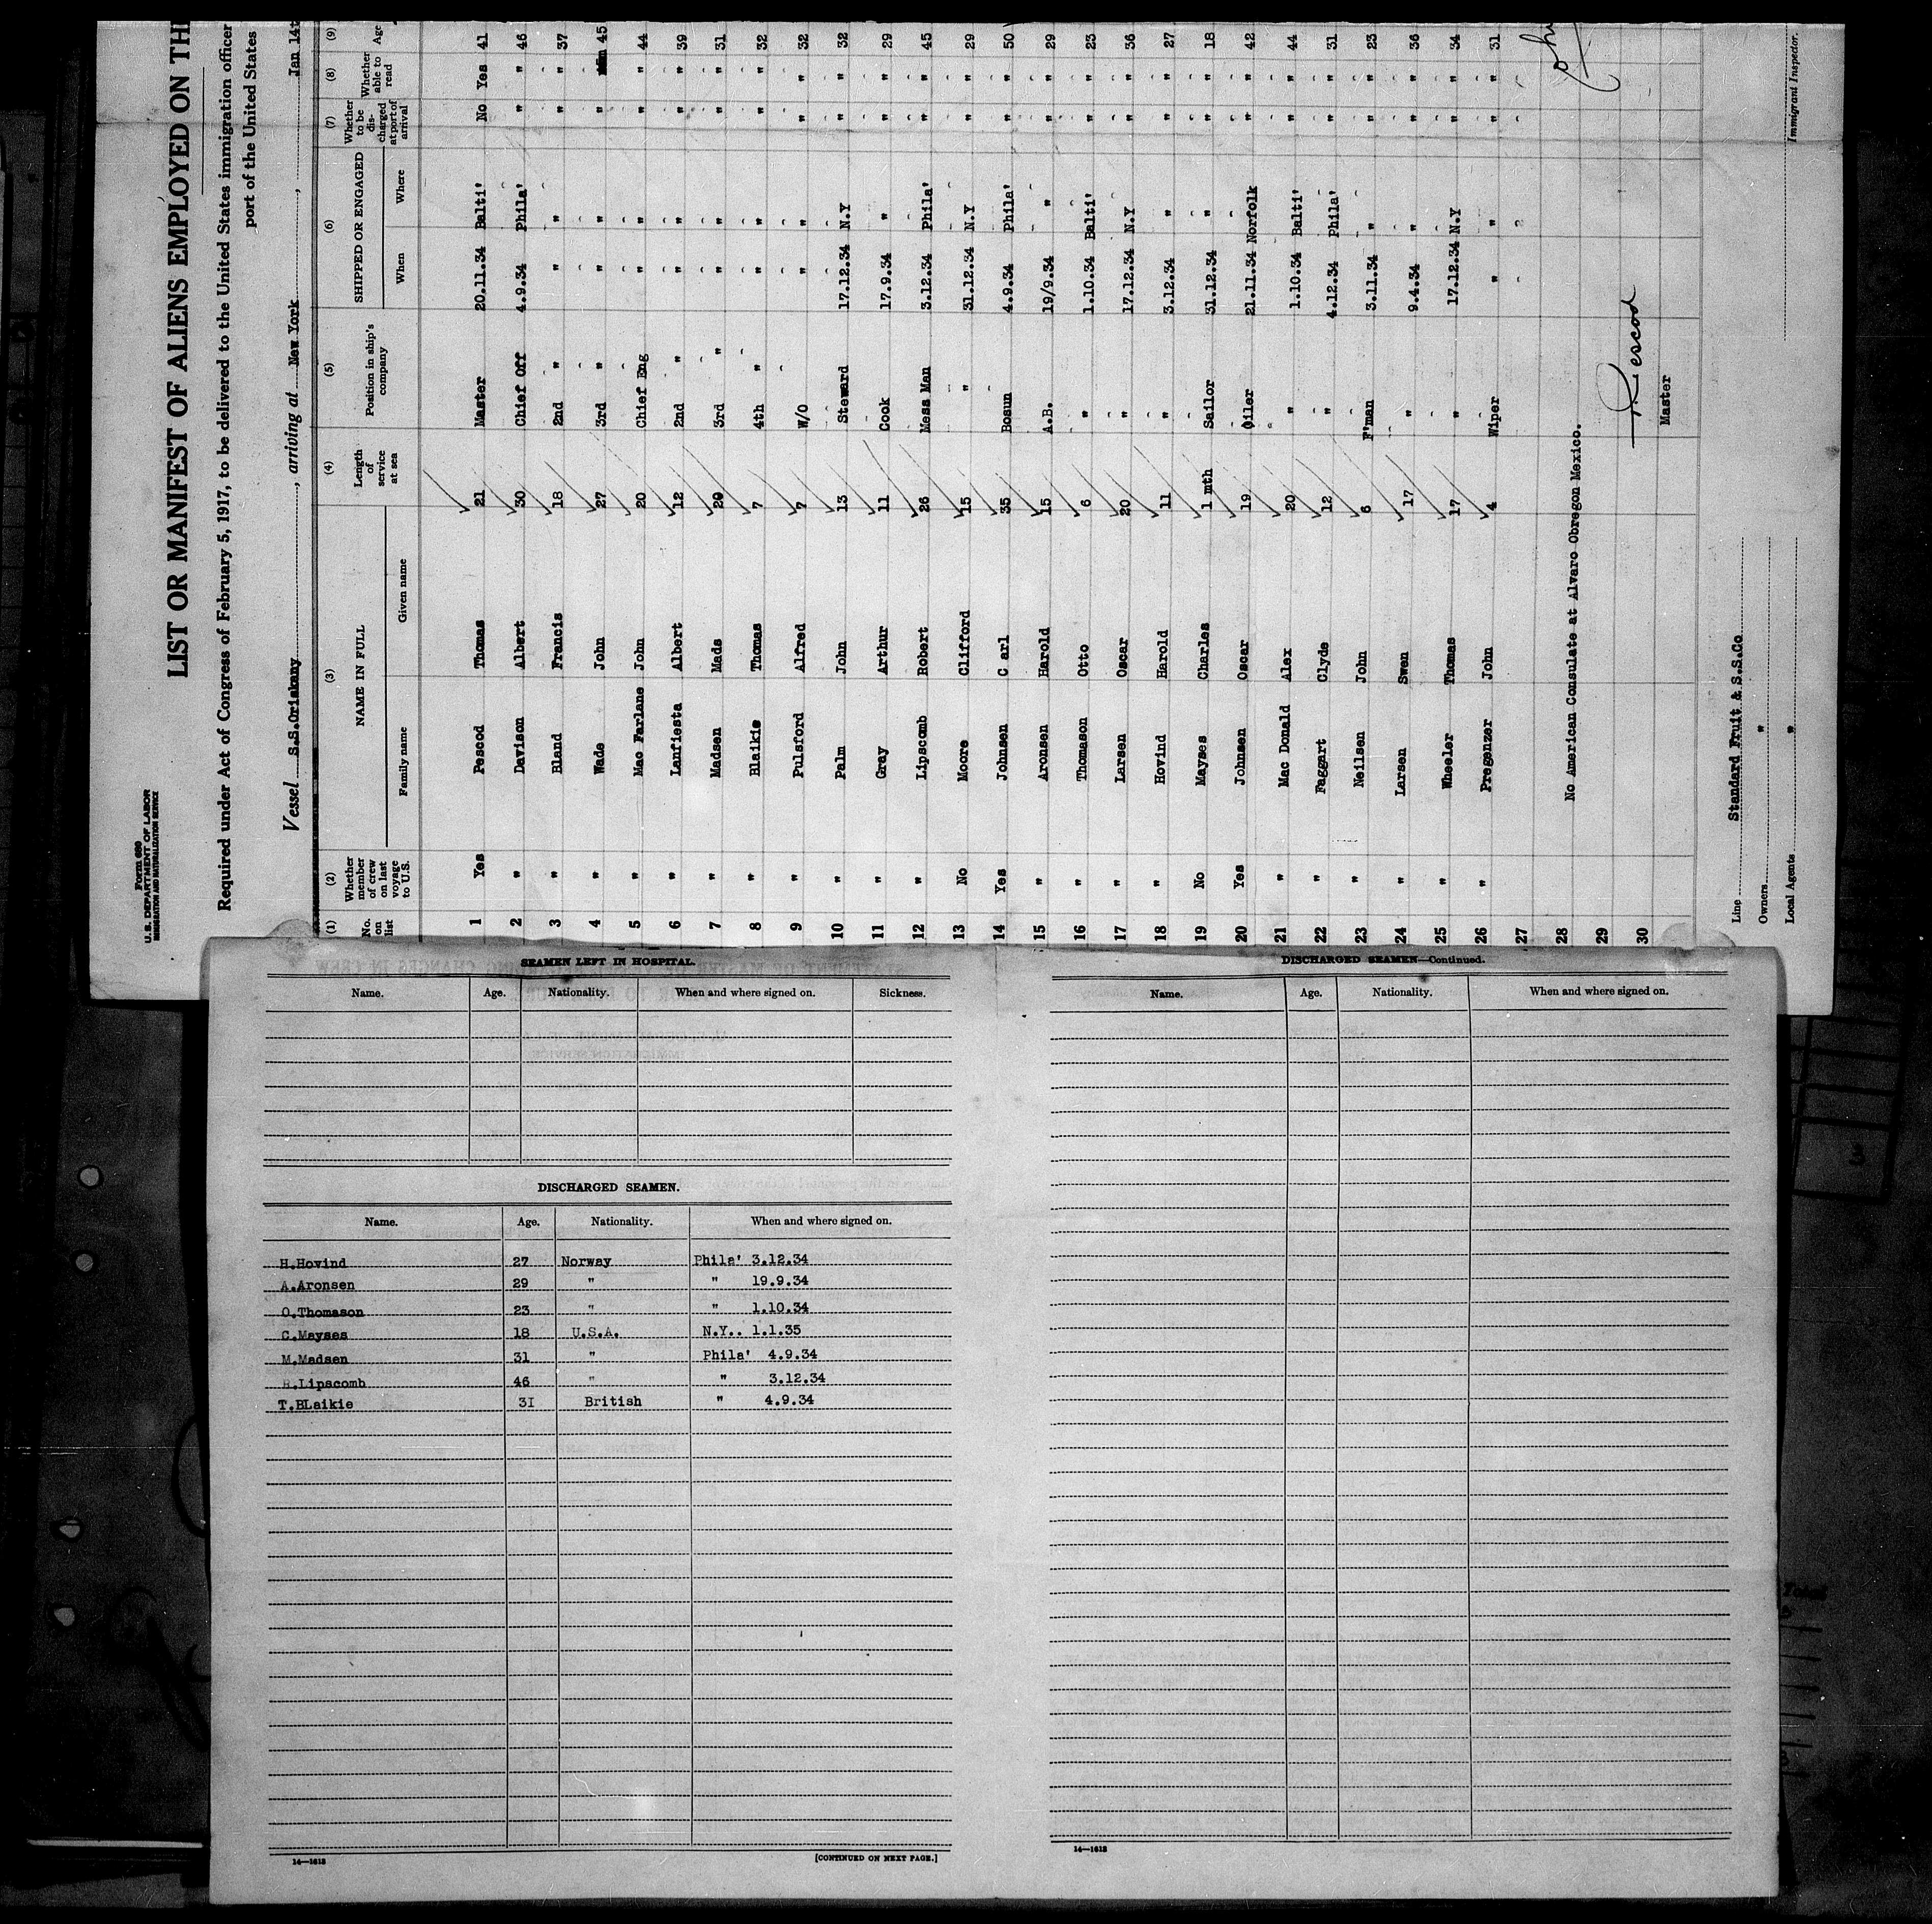 Form 680
U. S. DEPARTMENT OF LABOR
IMMIGRATION AND NATURALIZATION SERVICE
LIST OR MANIFEST OF ALIENS EMPLOYED ON TH
Required under Act of Congress of February 5, 1917, to be delivered to the United States immigration officer
port of the United States
Vessel S.S.Oriskany, arriving at New York, Jan 14t
(1) (2) (3) (4) (5) (6) (7) (8) (9)
No. on list Whether member of crew on last voyage to U.S. NAME IN FULL Length of service at sea Position in ship's company SHIPPED OR ENGAGED Whether to be discharged at port of arrival Whether able to read Age
Family name Given name When Where
1 Yes Pescod Thomas 21 Master 20.11.34 Balti' No Yes 41
2 " Davison Albert 30 Chief Off 4.9.34 Phila' " " 46
3 " Bland Francis 18 2nd " " " " " 37
4 " Wade John 27 3rd " " " " 45
5 " Mac Farlane John 20 Chief Eng " " " " 44
6 " Lanfiesta Albert 12 2nd " " " " " 39
7 " Madsen Mads 29 3rd " " " " " 31
8 " Blaikie Thomas 7 4th " " " " " 32
9 " Pulsford Alfred 7 W/O " " " " 32
10 " Palm John 13 Steward 17.12.34 N.Y " " 32
11 " Gray Arthur 11 Cook 17.9.34 " " " 29
12 " Lipscomb Robert 26 Mess Man 3.12.34 Phila' " " 45
13 No Moore Clifford 15 " 31.12.34 N.Y " " 29
14 Yes Johnsen C arl 35 Bosun 4.9.34 Phila' " " 50
15 " Aronsen Harold 15 A.B. 19/9.34 " " " 29
16 " Thomason Otto 6 " 1.10.34 Balti' " " 23
17 " Larsen Oscar 20 " 17.12.34 N.Y " " 36
18 " Hovind Harold 11 " 3.12.34 " " " 27
19 No Mayses Charles 1 mth Sailor 31.12.34 " " " 18
20 Yes Johnsen Oscar 19 Oiler 21.11.34 Norfolk " " 42
21 " Mac Donald Alex 20 " 1.10.34 Balti' " " 44
22 " Faggart Clyde 12 " 4.12.34 Phila' " " 31
23 " Neilsen John 6 F'man 3.11.34 " " " 23
24 " Larsen Swen 17 " 9.4.34 " " " 36
25 " Wheeler Thomas 17 " 17.12.34 N.Y " " 34
26 " Pregenzer John 4 Wiper " " " " 31
27
28 No American Consulate at Alvaro Obregon Mexico.
29
30
T Pescod
Master
Line Standard Fruit & S.S.Co
Owners "
Local Agents "
Immigrant Inspector.
SEAMEN LEFT IN HOSPITAL.
Name. Age. Nationality. When and where signed on. Sickness.
DISCHARGED SEAMEN.
Name. Age. Nationality. When and where signed on.
H.Hovind 27 Norway Phila' 3.12.34
A.Aronsen 29 " " 19.9.34
O.Thomason 23 " " 1.10.34
C.Mayses 18 U.S.A. N.Y.. 1.1.35
M.Madsen 31 " Phila' 4.9.34
R.Lipscomb 46 " " 3.12.34
T.BLaikie 3I British " 4.9.34
14—1613 [CONTINUED ON NEXT PAGE.]
DISCHARGED SEAMEN—Continued.
Name. Age. Nationality. When and where signed on.
14—1613